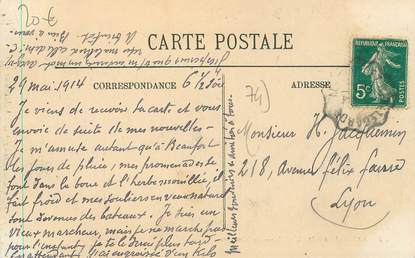 20 F
CARTE POSTALE
RÉPUBLIQUE FRANÇAISE
5c
POSTES
29 mai 1914
CORRESPONDANCE
6h Soir
ADRESSE
74)
Je viens de recevoir ta carte et vous
envoie de suite de mes nouvelles -
Je m'amuse autant qu'à Beaufort
les jours de pluie, mes promenades se
font dans la boue et l'herbe mouillée, il
fait froid et mes souliers en viennent
sont devenus des bateaux. Je suis un
vieux marcheur, mais je ne marche pas
pour l'instant, je te le dirai plus tard -
en attendant j'ai augmenté d'un kilo
Meilleurs
à tous
Monsieur H. Jacquemin
218, Avenue félix faure
Lyon